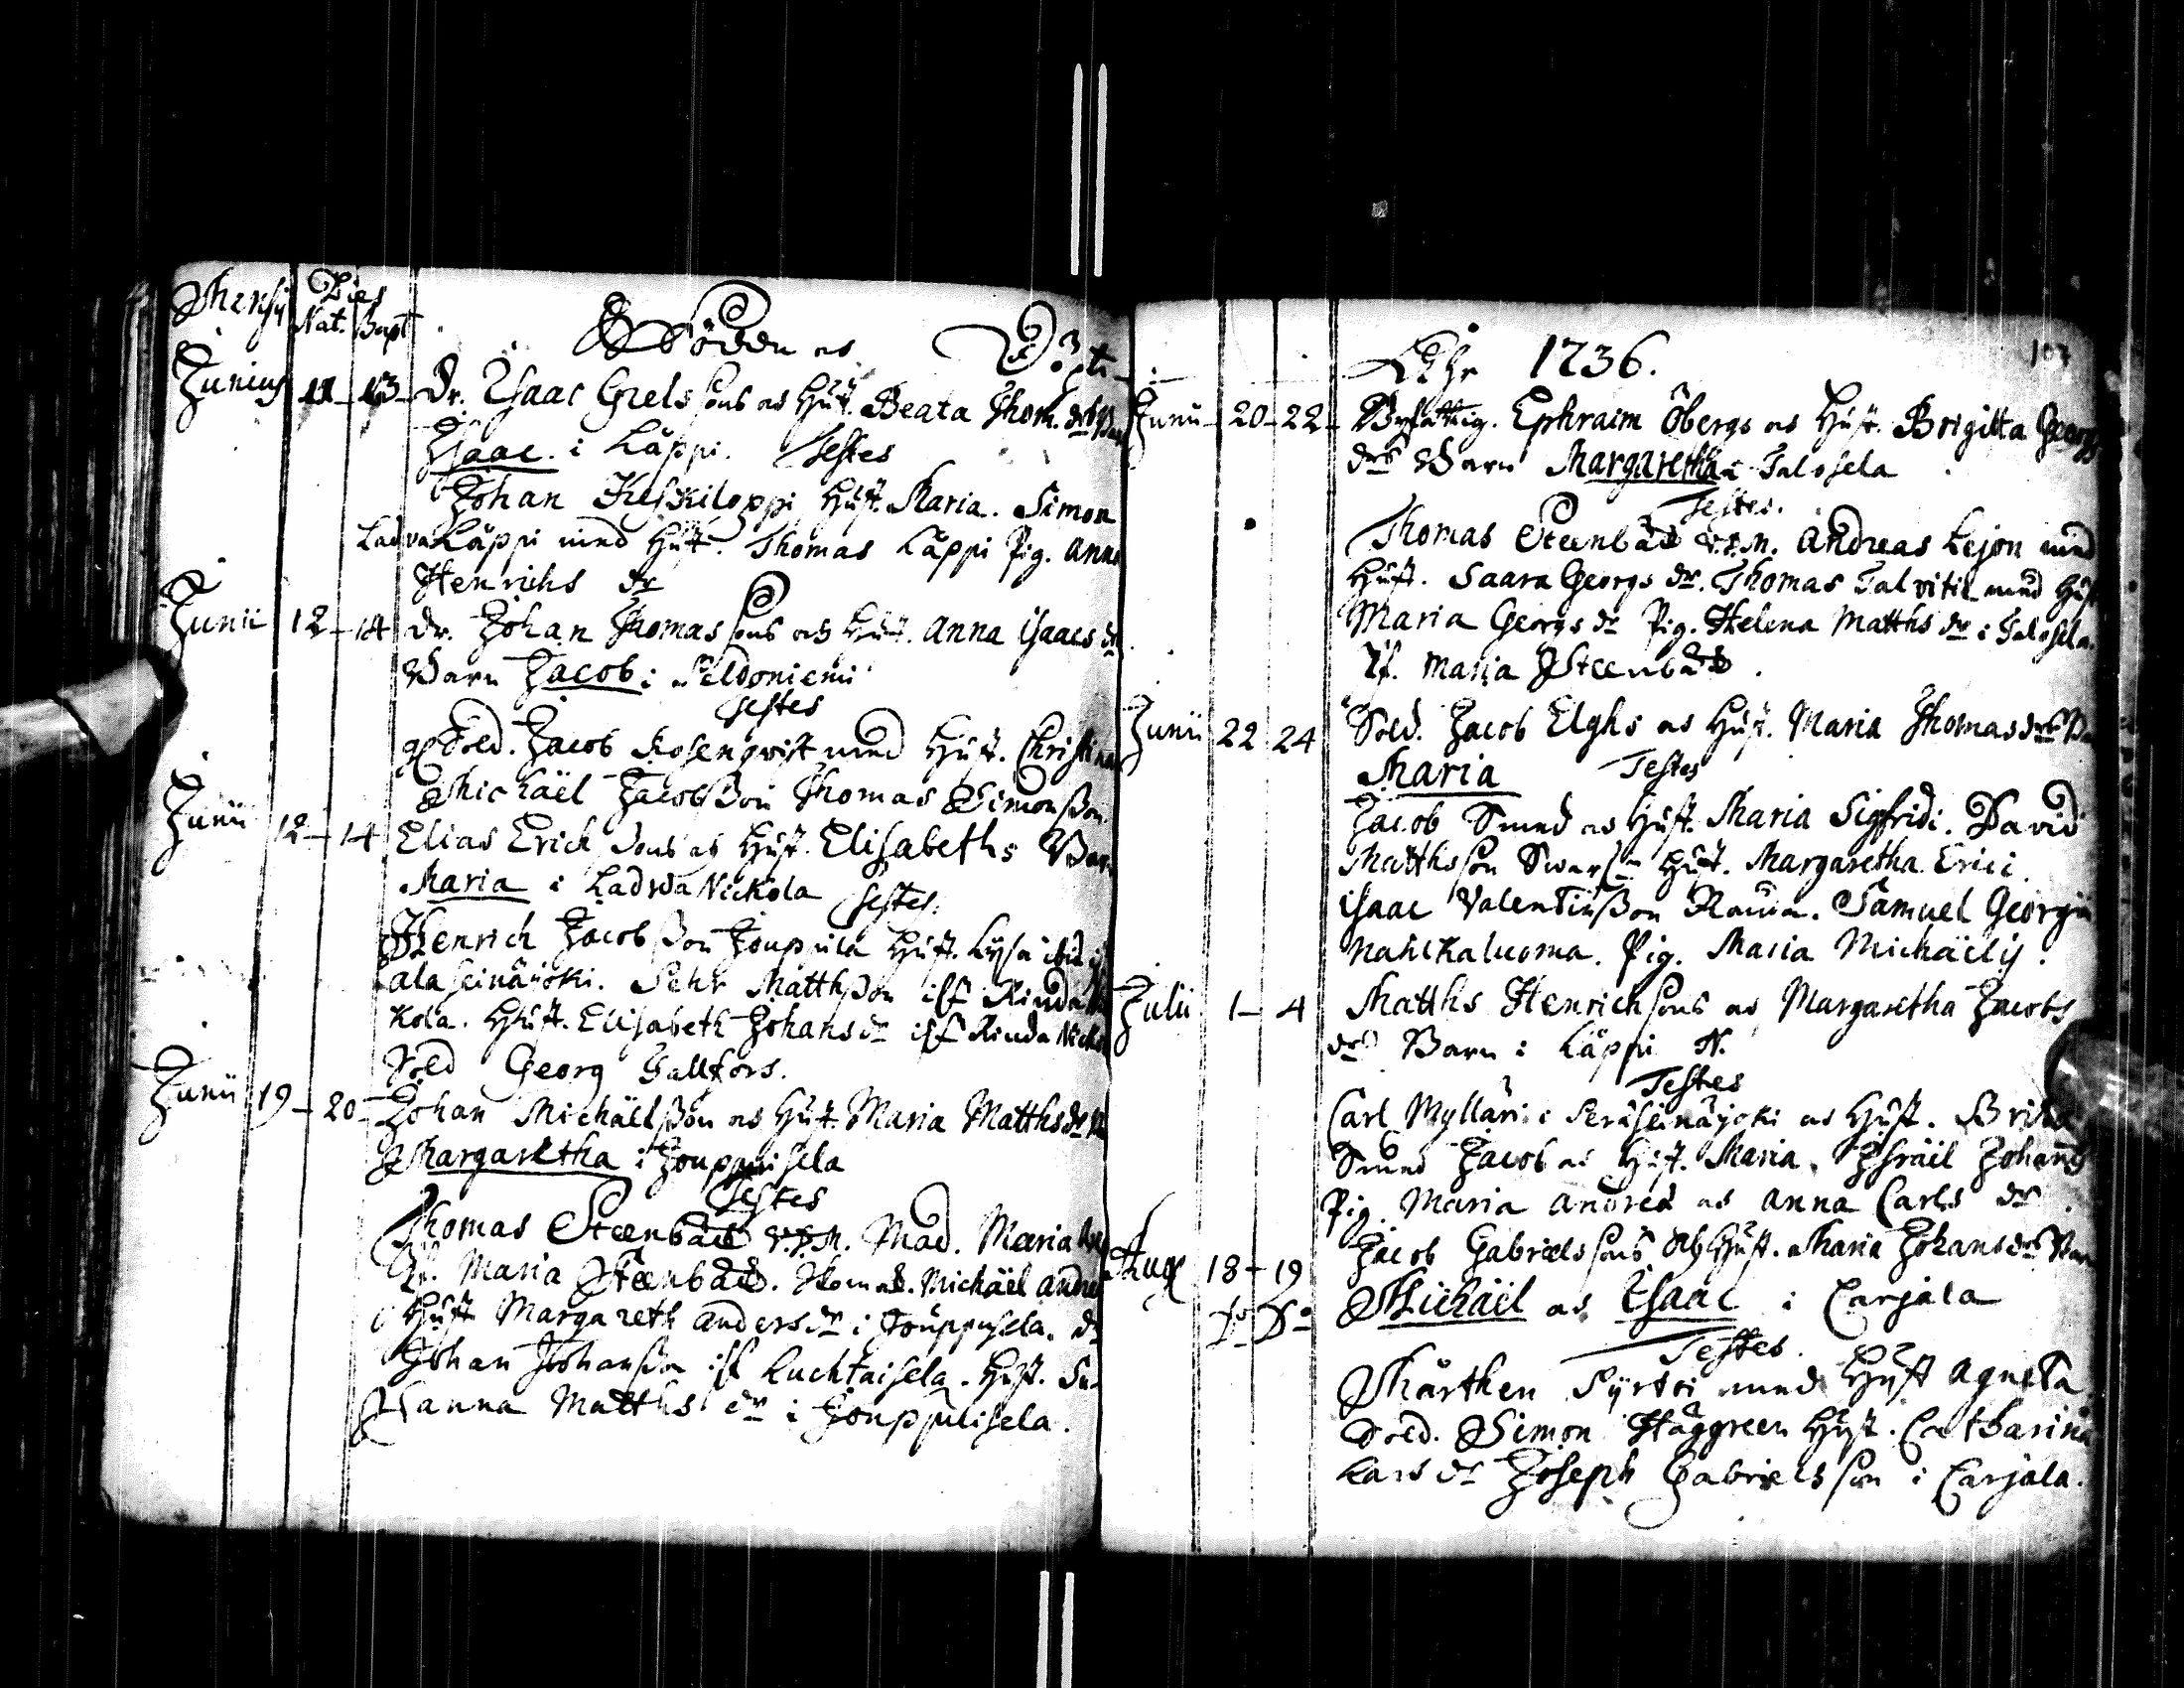 Mensis Dies
Nat. Bapt
Födde och Döpte
Junius 11 - 13 - Dr. Isaac Grels sons och Hust. Beata Thom. drs Barn
Isaac. i Läppi. Testes
Johan Keskiloppi Hust. Maria. Simon
Ladva Läppi med Hust. Thomas Läppi Pig. Anna
Henrichs dr
Junii 12 - 14 Dr. Johan Thomas sons och Hust. Anna Isaacs dr
Barn Jacob i Peldoniemi
Testes
Sold. Jacob Rosenqvist med Hust. Christina
Michäel Jacobsson Thomas Simonsson
Junii 12 - 14 Elias Erich sons och Hust. Elisabeths Barn
Maria i Ladva Nickola Testes.
Henrich Jacobsson Jouppila Hust. Lysa ibid
Alaseinäjoki. Pehr Matthsson Rinda
Kola. Hust. Elisabeth Johans dr Rinda Nicko
Sold Georg Tallfors.
Junii 19 - 20 - Johan Michäelsson och Hust. Maria Matths dr
Margaretha i Jouppisela
Testes
Thomas Steenbäck V.P.M. Mad. Maria
Maria Steenbäck. Michäel Andre
Hust Margareth Anders dr i Jouppusela. dr
Johan Johansson Luchtaisela. Hust. Su-
sanna Matths dr i Jouppilisela.
Åhr 1736. 107
Junii - 20 - 22 - Ephraim Öbergs och Hust. Brigitta Georgs
drs Barn Margaretha i Talosela
Testes.
Thomas Steenbäck V.P.M. Andreas Lejon med
Hust. Saara Georgs dr. Thomas Talvitie med Hust
Maria Georgs dr Pig. Helena Matths dr i Talosela.
Jf. Maria Steenbäck.
Junii 22 24 Sold. Jacob Elghs och Hust. Maria Thomas drs Ba
Maria Testes
Jacob Smed och Hust. Maria Sigfridi. David
Matthsson Hust. Margaretha Erici.
Isaac Valentinsson Rauma. Samuel Georgii
Nahkaluoma. Pig. Maria Michäelis.
Julii 1 - 4 Matths Henrichsons och Margaretha Jacobs
drs Barn i Läppi N.
Testes
Carl Myllari i Peräseinäjoki och Hust. Brita
Smed Jacob och Hust. Maria. Isräel Johans
Pig Maria Andreä och Anna Carls dr
Aug 18 - 19 Jacob Gabrielssons och Hust. Maria Johans drs Barn
Do Do Michäel och Isaac i Carjala
Testes.
Mårthen Syrtti med Hust Agneta
Sold. Simon Häggreen Hust. Catharina
Lars dr Joseph Gabrielsson i Carjala.